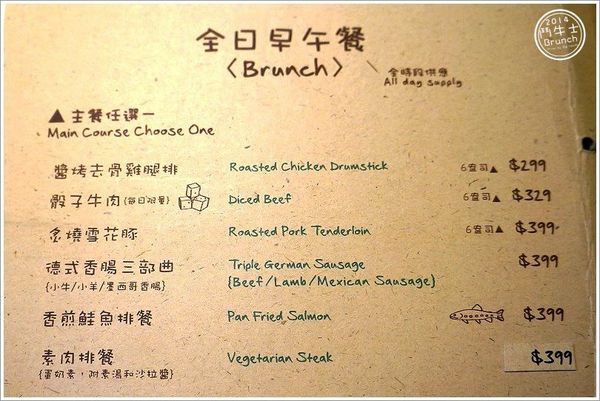 2014
鬥牛士
Brunch
全日早午餐
〈Brunch〉
全時段供應
All day supply
▲主餐任選一
Main Course Choose One
醬烤去骨雞腿排 Roasted Chicken Drumstick 6盎司▲ $299
骰子牛肉(每日限量) Diced Beef 6盎司▲ $329
炙燒雪花豚 Roasted Pork Tenderloin 6盎司▲ $399
德式香腸三部曲 Triple German Sausage $399
{小牛/小羊/墨西哥香腸} {Beef/Lamb/Mexican Sausage}
香煎鮭魚排餐 Pan Fried Salmon $399
素肉排餐 Vegetarian Steak $399
{蛋奶素，附素湯和沙拉醬}